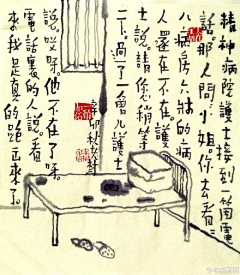 精神病院護士接到一個電
話。那人問小姐。你去看看
八病房六牀的病
人還在不在。護
士說請您稍等
一下。過了一會儿護士
說。哎呀。他不在了呀。
電話裏的人說。看
來我是真的跑出來了。
辛卯秋